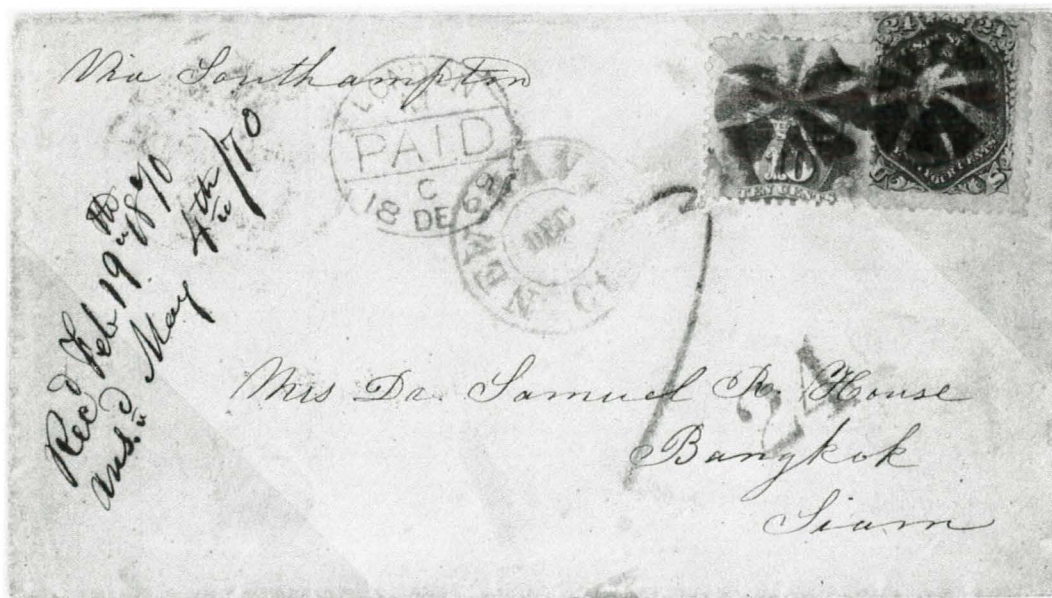 Via Southampton
PAID
C
18 DE 69
NEW HAVEN
DEC
Ct
10
TEN CENTS
24
24
U
S
Rec'd Feb 19th 1870
ans.d May 4th /70
24
Mrs Dr. Samuel R. House
Bangkok
Siam